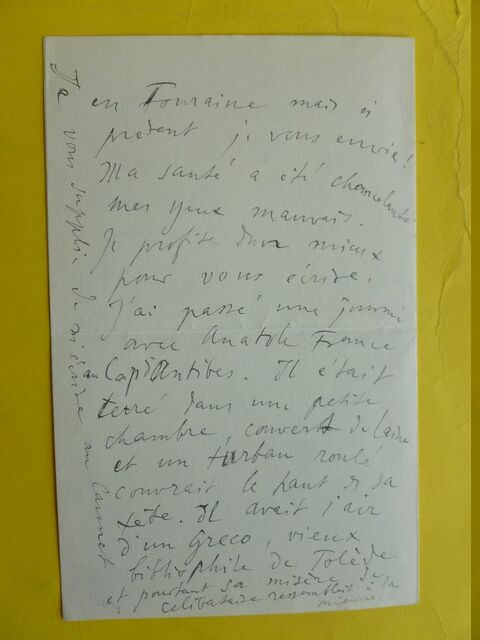 en Touraine mais ci
présent je vous envie!
Ma santé a été chancelante
mes yeux mauvais.
Je profite d'un mieux
pour vous écrire.
J'ai passé une journée
avec Anatole France
au Cap d'Antibes. Il était
terré dans une petite
chambre, couvert de laine
et un turban roulé
couvrait le haut de sa
tête. Il avait l'air
d'un Greco, vieux
bibliophile de Tolède
et pourtant sa misère de
célibataire ressemblait à la
mienne.
Je vous supplie de m'écrire au Cannet